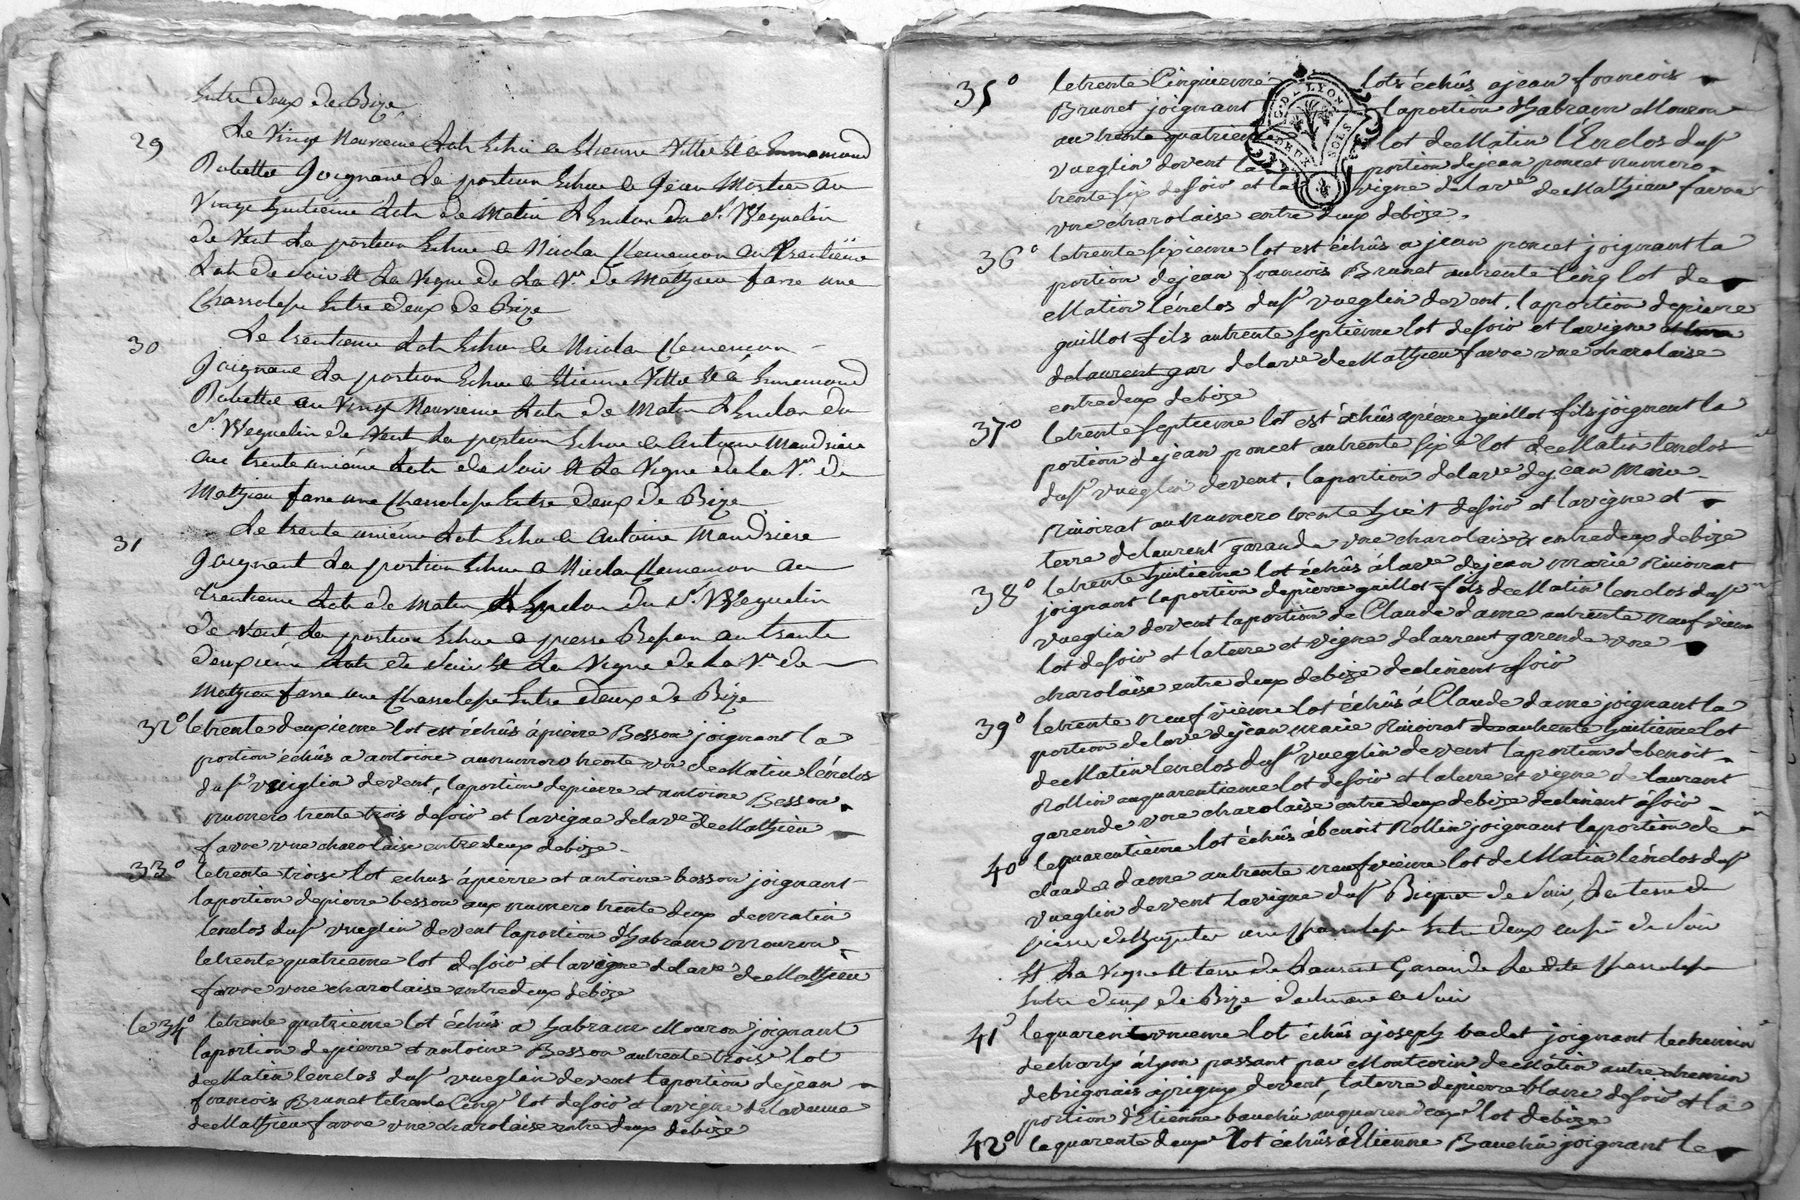 Entre deux de Bize
29 Le Vingt Neuvieme Lot Echu a Etienne Vitte Et a Ennemond
Joignant La portion Echue a Jean au
Vingt huitiéme Lot de Matin L'Enclos du Sr. Weguelin
de Vent La portion Echue a Nicola Clemencon au Trentieme
Lot de Soir Et La Vigne de La Ve. de Mathieu farre une
Entre deux de Bize
30 Le trentieme Lot Echu a Nicola Clemencon
Joignant La portion Echue a Etienne Vitte Et á Ennemond
au Vingt Neuvieme Lot de Matin L'Enclos du
Sr. Weguelin de Vent La portion Echue a Antoine Maudriere
au trente uniéme Lot de Soir Et La Vigne de La Ve. de
Mathieu farre une Entre deux de Bize
31 Le trente uniéme Lot Echu a Antoine Maudriere
Joignant La portion Echue a Nicola Clemencon au
Trentieme Lot de Matin L'Enclos du Sr. Weguelin
de Vent La portion Echue a pierre Besson au trente
deuxiéme Lot de Soir Et La Vigne de La Ve. de
Mathieu farre une Entre deux de Bize
32o le trente deuxieme lot est échûs á pierre Besson joignant la
portion échûs a antoine au numero trente un de Matin l'énclos
dusr vueglin de vent, la portion de pierre et antoine Besson
numero trente trois de soir et la vigne de la ve de Mathieu
favre une charolaise entre deux de bize
33o le trente trois lot echus á pierre et antoine besson joignant
la portion de pierre besson aux numero trente deux de matin
lenclos dusr vueglin de vent la portion d'habram mouron
le trente quatrieme lot de soir et la vigne de la ve de Mathieu
favre une charolaise entre deux de bize
le 34o le trente quatrieme lot échûs a habram Mouron joignant
la portion de pierre et antoine Besson au trente trois lot
de Matin lenclos dusr vueglin de vent la portion de jean
francois Brunet le trente Cinqe lot de soir et la vigne de la veuve
de Mathieu favre une charolaise entre deux de bize
35o le trente Cinquieme lots échûs a jean francois
Brunet joignant la portion d'habram Mouron
au trente quatrieme lot de Matin l'énclos dusr
vueglin de vent la portion de jean poncet numero
trente six de soir et la vigne de la ve de Mathieu favre
une charolaise entre deux de bize.
G. D. LYON
DEUX SOLS
36o le trente sixieme lot est échûs a jean poncet joignant la
portion de jean francois Brunet au trente Cinq lot de
Matin lénclos dusr vueglin de vent, la portion de pierre
guillot fils au trente septiéme lot de soir et la vigne
de laurent gar de la ve de Mathieu favre une charolaise
entre deux de bize
37o le trente septieme lot est échûs á piérre guillot fils joignant la
portion de jean poncet au trente six lot de Matin lenclos
dusr vueglin de vent, la portion de la ve de jean Marie
au numero trente huit de soir et la vigne et
terre de laurent garande une charolaise entre deux de bize
38o le trente huitieme lot échûs á la ve de jean Marie
joignant la portion de pierre guillot fils de Matin lenclos dusr
vueglin de vent la portion de Claude dame au trente neufvieme
lot de soir et la terre et vigne de laurent garende une
charolaise entre deux de bize declinent á soir
39o le trente neufviéme lot échûs á Claude dame joignant la
portion de la ve de jean Marie au trente huitieme lot
de Matin lenclos dusr vueglin de vent la portion de benoit
Rollin au quarentieme lot de soir et la terre et vigne de laurent
garende une charolaise entre deux de bize declinent á soir
40o le quarentieme lot échûs á benoit Rollin joignant la portion de
claude dame au trente neufvieme lot de Matin lénclos dusr
vueglin de vent la vigne dusr de Soir, La terre de
Entre deux de Soir
Et La Vigne Et terre de Laurent Garande La dite
Entre deux de Bize a Soir
41o le quarente unieme lot échûs a joseph badet joignant le chemin
de charly á lyon passant par Montcorin de Mátin autre chemin
de brignais a jrigny de vent, la terre de pierre blanc de soir et la
portion d'Etienne bauchû au quarente deuxe lot de bize
42o le quarente deuxe lot échûs á Etienne Bauchû joignant le